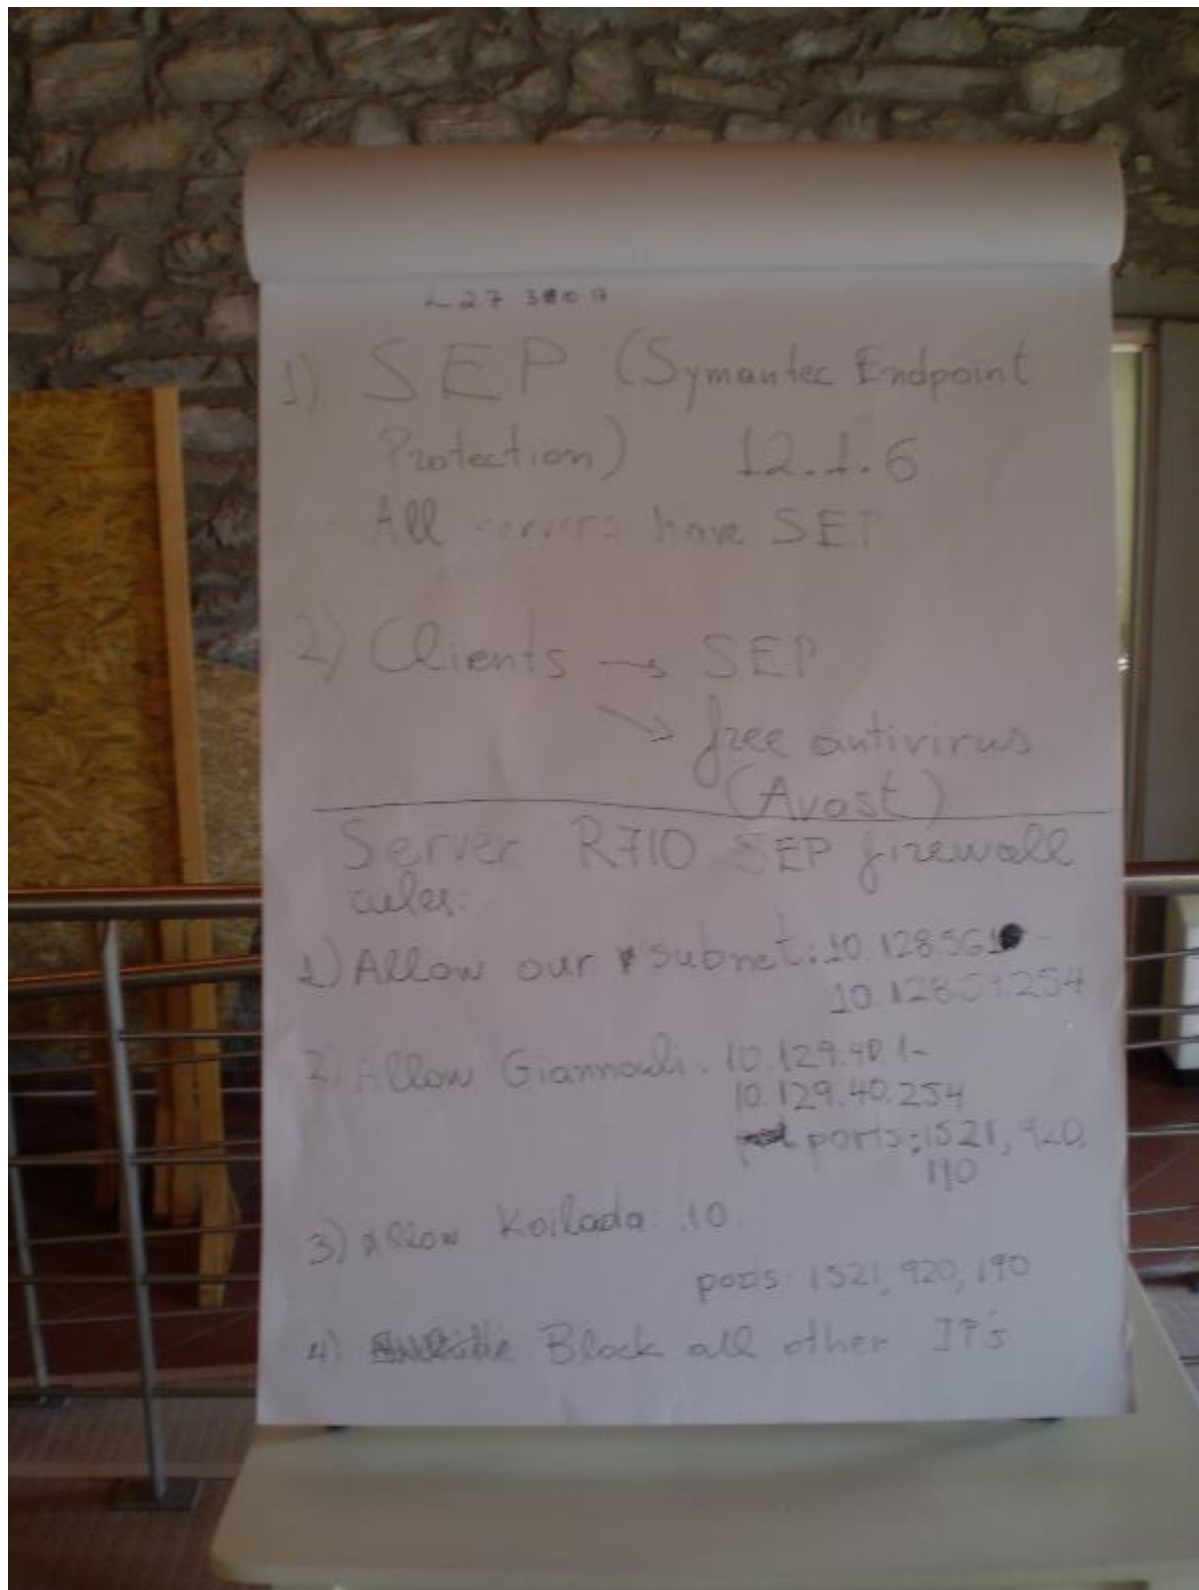 1) SEP (Symantec Endpoint
Protection) 12.1.6
All servers have SEP
2) Clients → SEP
↘ free antivirus
(Avast)
Server R710 SEP firewall
rules:
1) Allow our subnet: 10.128.56.1 -
10.128.
2) Allow Giannouli: 10.129.40.1-
10.129.40.254
ports: 1521, 920,
190
3) Allow Koilada: 10.
ports: 1521, 920, 190
4) Block all other IP's